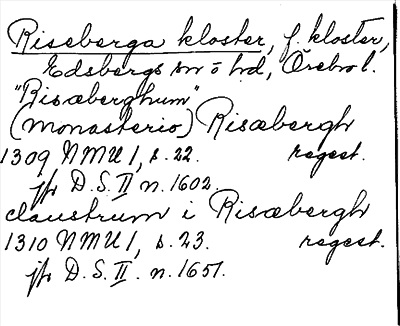 Riseberga kloster, f. kloster,
Edsbergs sn o hd, Örebro l.
"Risæberghum"
(monasterio) Risæbergh
1309 NMU 1, s. 22. regest.
jfr D.S. II n. 1602.
claustrum i Risæbergh
1310 NMU 1, s. 23. regest.
jfr D.S. II. n. 1651.